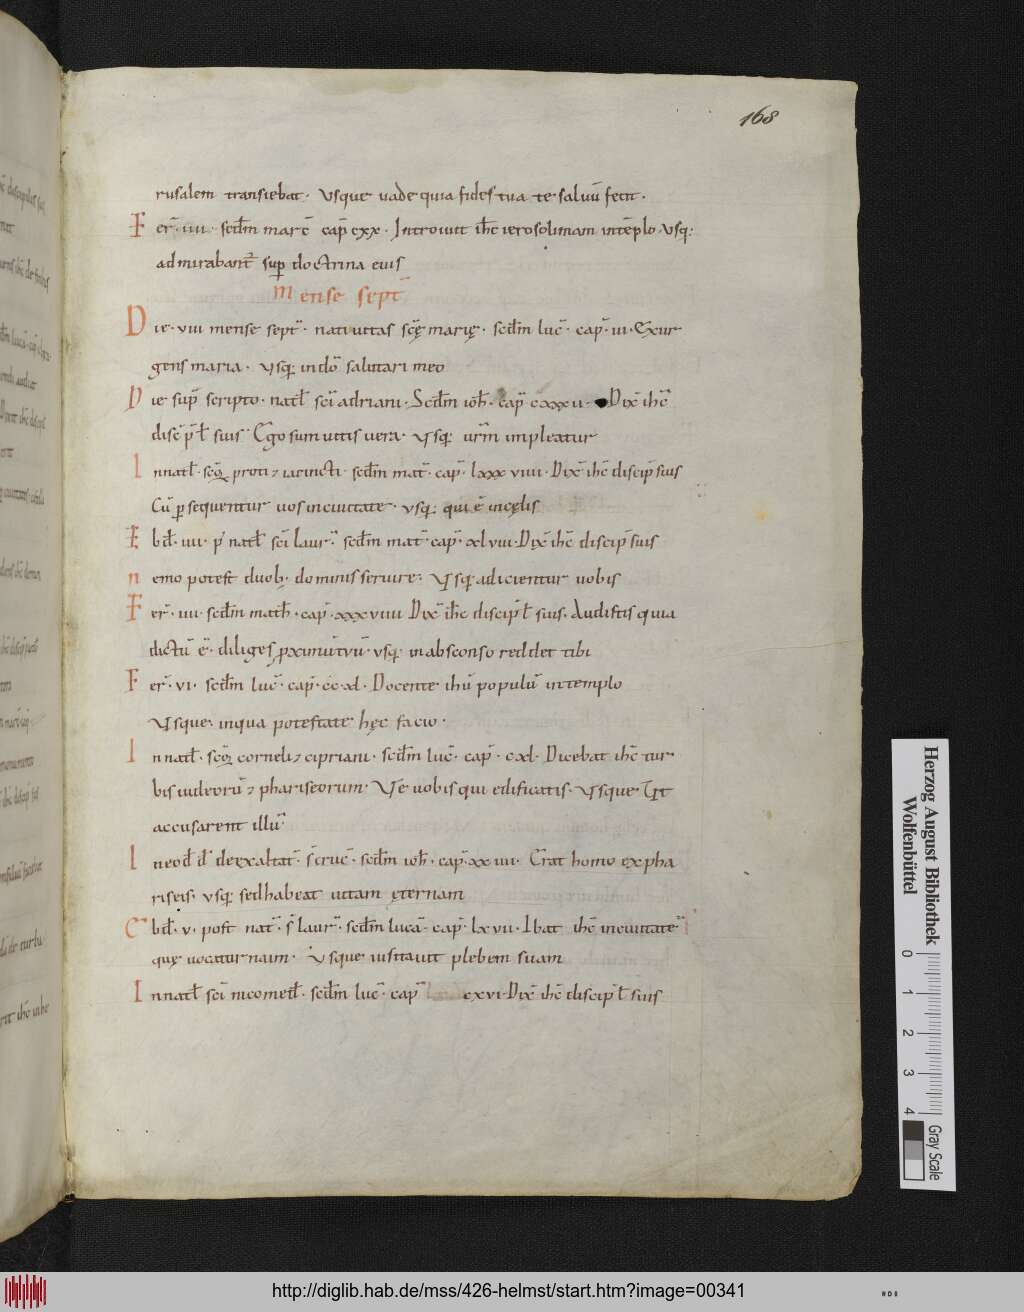 168
rusalem transiebat. Vsque uade quia fides tua te saluū fecit.
Fer̄. iiii. scđm marc̄ cap̄ cxx. Introiuit ihc̄ ierosolimam intēplo. Vsq;
admirabant̄ sup̄ doctrina eius
Mense sept̄
Die. viii mense sept̄. natiuitas scę marię. scđm luc̄. cap̄. iii. Exur
gens maria. Vsq; indō salutari meo
Die sup̄ scripto. natł sci adriani. Scđm ioh̄. cap̄. cxxxii. Dix̄ ihc̄
disc̄ p̄ł suis. Ego sum uitis uera. Vsq; ur̄m impleatur
Innatł. scōʒ proti ⁊ iacincti. scđm mat̄. cap̄. lxxxviiii. Dix̄ ihc̄ discip̄ suis
Cū p̄sequentur uos inciuitate. vsq; qui ē incęlis
Ebđ. iiii. p̄ natł sci laur̄. scđm mat̄. cap̄. xlviii. Dix̄ ihc̄ discip̄ suis
nemo potest duob; dominis seruire. Vsq; adicientur uobis
Fer̄. iiii. scđm math̄. cap̄. xxxviiii Dix̄ ihc̄ discip̄ł suis. Audistis quia
dictū ē. diliges p̄ximū tuū. vsq; inabsconso reddet tibi
Fer̄. vi. scđm luc̄. cap̄. ccxl. Docente ihū populū intemplo
Vsque. inqua potestate hęc facio.
Innatł. scōʒ corneli ⁊ cipriani. scđm luc̄. cap̄. cxl. Dicebat ihc̄ tur
bis iudeorū ⁊ phariseorum. Ve uobis qui edificatis. Vsque Ut
accusarent illū
Ineođ đ deexaltat̄. s̄ cruc̄. scđm ioh̄. cap̄. xxiiii. Erat homo expha
riseis. vsq; sedhabeat uitam ęternam
Ebđ. v. post nat̄. s̄ laur̄. scđm lucā. cap̄. lxvii. Ibat ihc̄ inciuitatē
quę uocatur naim. Vsque uisitauit plebem suam
Innatł sci nicomeđ. scđm luc̄. cap̄ cxvi. Dix̄ ihc̄ discip̄ł suis
Herzog August Bibliothek
Wolfenbüttel
0 1 2 3 4
Gray Scale
http://diglib.hab.de/mss/426-helmst/start.htm?image=00341